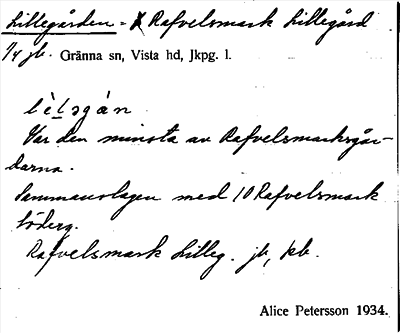 Lillegården = Rafvelsmark Lillegård
1/4 jb. Gränna sn, Vista hd, Jkpg. l.
lèlsgán
Var den minsta av Rafvelsmarksgår-
darna.
Sammanslagen med 10 Rafvelsmark
Söderg.
Rafvelsmark Lilleg. jb, kb.
Alice Petersson 1934.